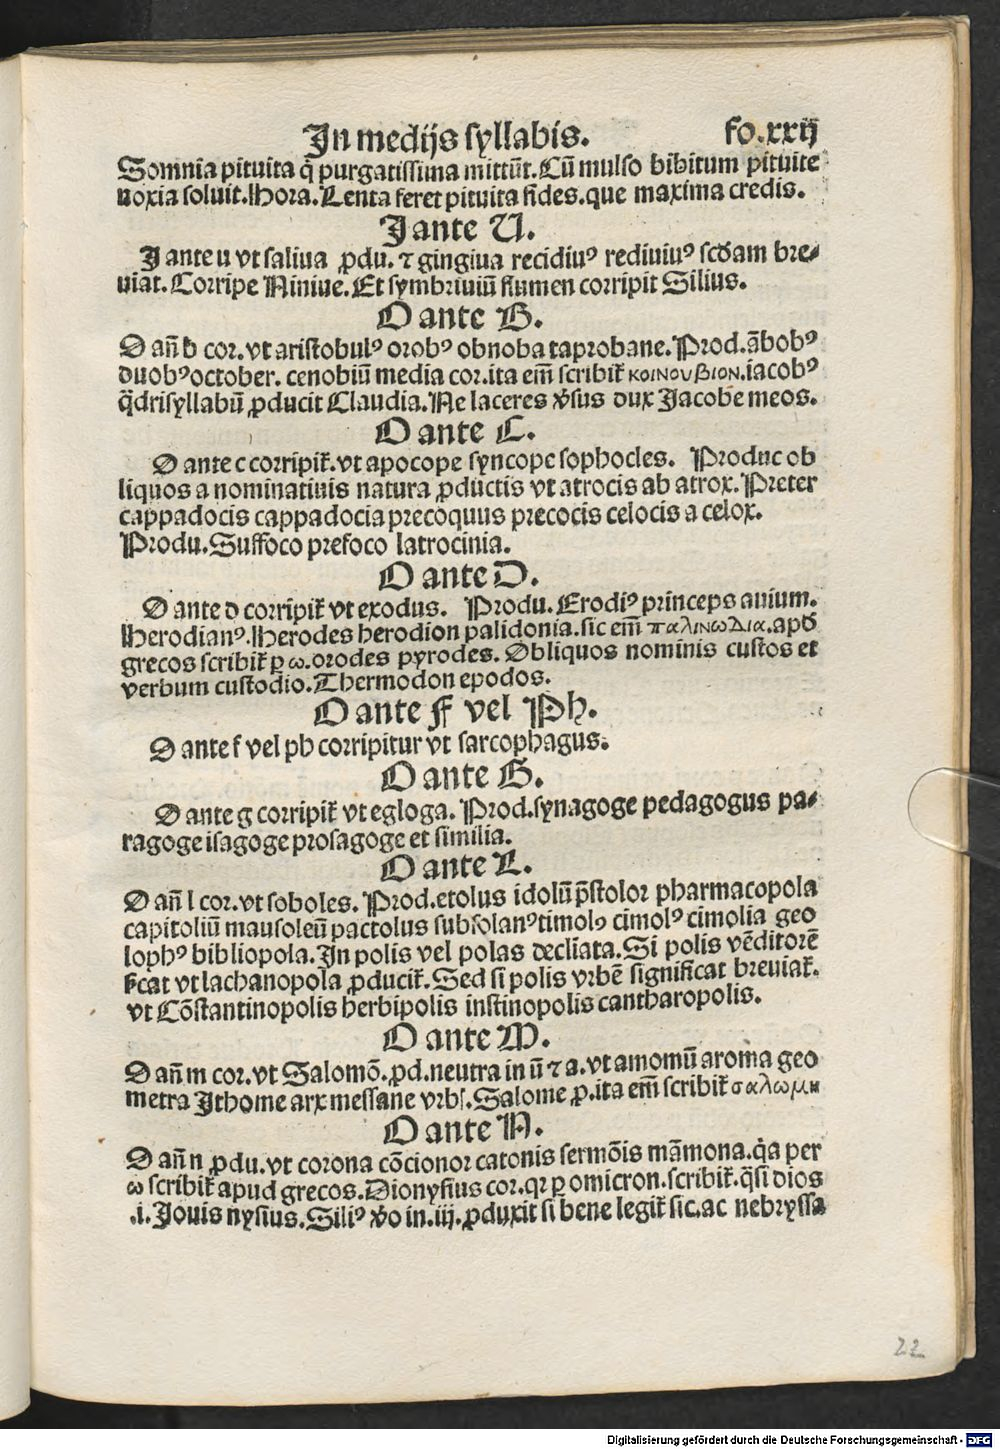 In medijs syllabis. fo.xxij
Somnia pituita q̄ purgatissima mittūt. Cū mulso bibitum pituite
noxia soluit. Hora. Lenta feret pituita fides. que maxima credis.
I ante U.
I ante u vt saliua ꝓdu. ⁊ gingiua recidiuꝰ rediuiuꝰ scd̄am bre⸗
uiat. Corripe Niniue. Et symbriuiū flumen corripit Silius.
O ante B.
O an̄ b cor. vt aristobulꝰ orobꝰ obnoba taprobane. Prod. ābobꝰ
duobꝰ october. cenobiū media cor. ita em̄ scribit̄ κοινουβιον. iacobꝰ
q̄drisyllabū ꝓducit Claudia. Ne laceres v̄sus dux Iacobe meos.
O ante C.
O ante c corripit̄. vt apocope syncope sophocles. Produc ob
liquos a nominatiuis natura ꝓductis vt atrocis ab atrox. Preter
cappadocis cappadocia precoquus precocis celocis a celox.
Produ. Suffoco prefoco latrocinia.
O ante D.
O ante d corripit̄ vt exodus. Produ. Erodiꝰ princeps auium.
Herodianꝰ. Herodes herodion palidonia. sic em̄ παλινωδια. apd̄
grecos scribit̄ ꝑ ω. orodes pyrodes. Obliquos nominis custos et
verbum custodio. Thermodon epodos.
O ante F vel Ph.
O ante f vel ph corripitur vt sarcophagus.
O ante G.
O ante g corripit̄ vt egloga. Prod. synagoge pedagogus pa⸗
ragoge isagoge prosagoge et similia.
O ante L.
O an̄ l cor. vt soboles. Prod. etolus idolū p̄stolor pharmacopola
capitoliū mausoleū pactolus subsolanꝰ timolꝰ cimolꝰ cimolia geo
lophꝰ bibliopola. In polis vel polas decliata. Si polis vēditorē
s̄cat vt lachanopola ꝓducit̄. Sed si polis vrbē significat breuiat̄.
vt Cōstantinopolis herbipolis instinopolis cantharopolis.
O ante M.
O an̄ m cor. vt Salomō. ꝓd. neutra in ū ⁊ a. vt amomū aroma geo
metra Ithome arx messane vrbs. Salome ꝓ. ita em̄ scribit̄ σαλωμη
O ante N.
O an̄ n ꝓdu. vt corona cōcionor catonis sermōis māmona. q̇a per
ω scribit̄ apud grecos. Dionysius cor. qꝛ ꝑ omicron. scribit̄. q̄si dios
.i. Iouis nysius. Siliꝰ v̄o in. iij. ꝓduxit si bene legit̄ sic. ac nebryssa
22
Digitalisierung gefördert durch die Deutsche Forschungsgemeinschaft - DFG